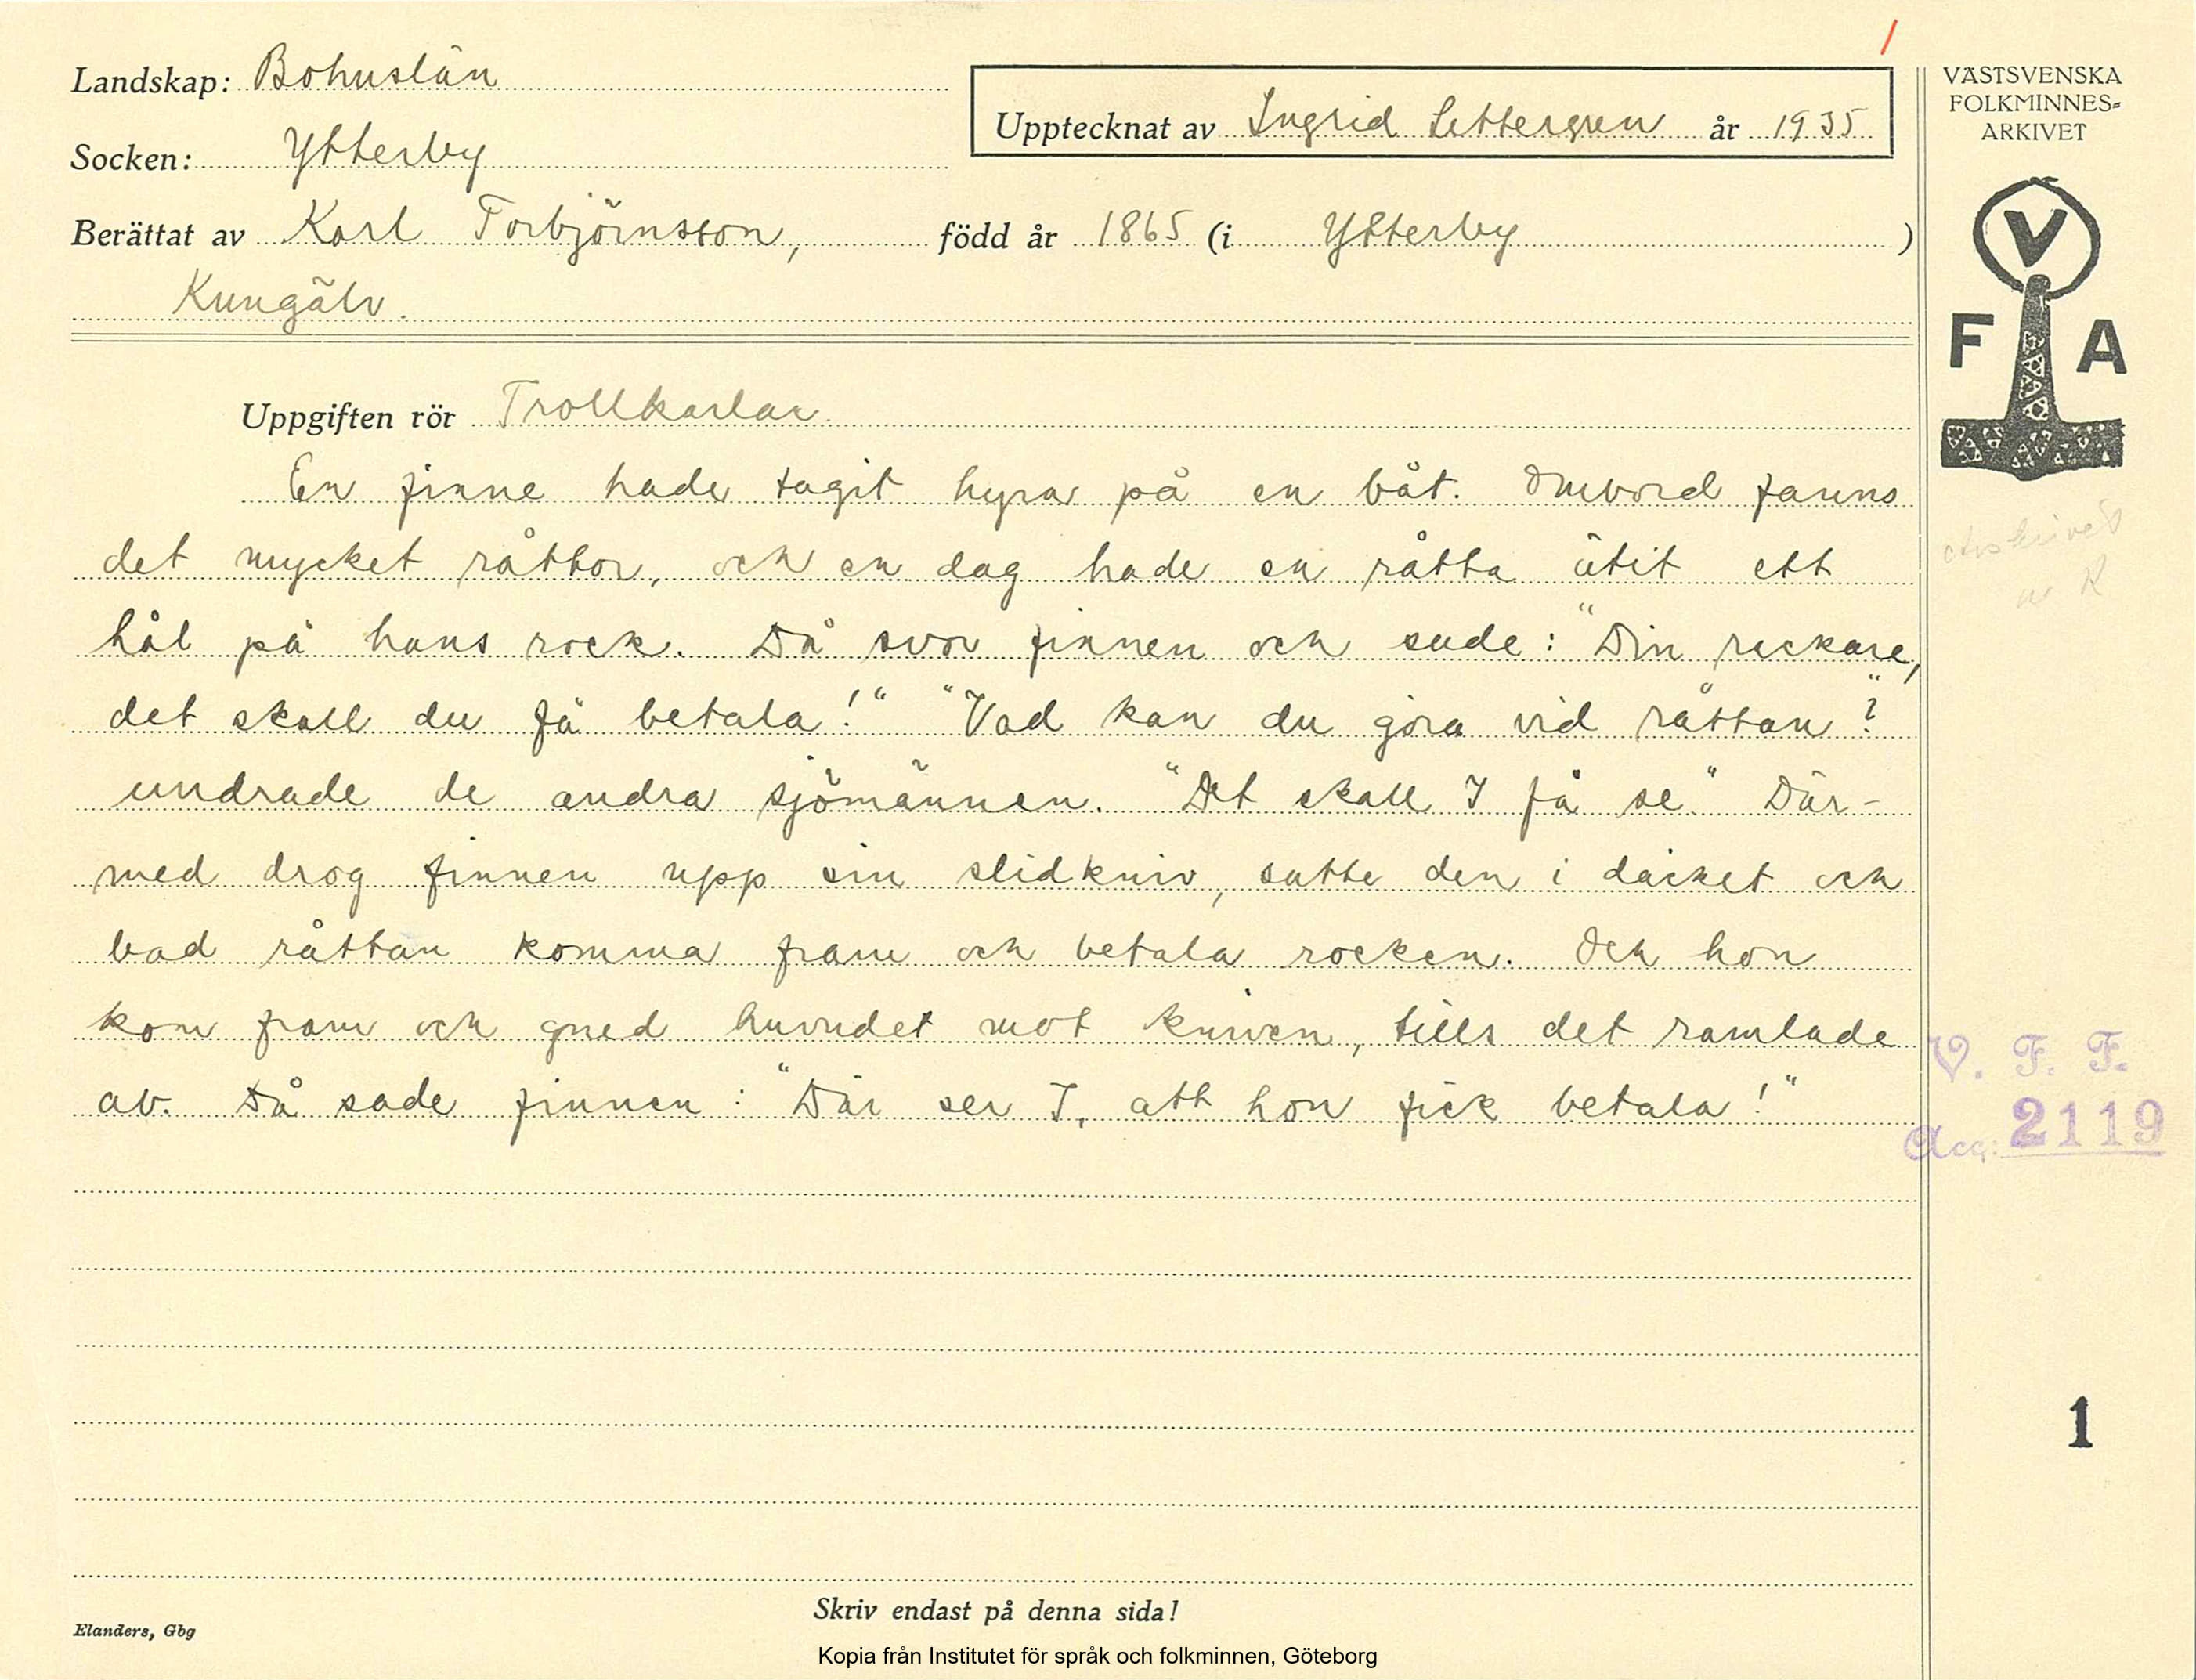 Landskap: Bohuslän
Upptecknat av Ingrid Settergren år 1935
Socken: Ytterby
Berättat av Karl Torbjörnsson, född år 1865 (i Ytterby)
Kungälv.
Uppgiften rör Trollkarlar.
En finne hade tagit hyra på en båt. Ombord fanns
det mycket råttor, och en dag hade en råtta ätit ett
hål på hans rock. Då svor finnen och sade: "Din rackare,
det skall du få betala!" "Vad kan du göra vid råttan?"
undrade de andra sjömännen. "Det skall I få se." Där-
med drog finnen upp sin slidkniv, satte den i däcket och
bad råttan komma fram och betala rocken. Och hon
kom fram och gned huvudet mot kniven, tills det ramlade
av. Då sade finnen: "Där ser I, att hon fick betala!"
Skriv endast på denna sida!
Elanders, Gbg
Kopia från Institutet för språk och folkminnen, Göteborg
VÄSTSVENSKA
FOLKMINNES-
ARKIVET
V
F A
V. F. F.
Acc. 2119
1